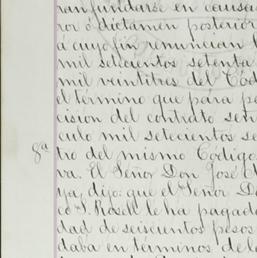 ranfundarse en causa
ror ó dictamen posterior
a cuyo fin renuncian l
mil setecientos setenta
mil veintitres del Cód
el término que para pe
cision del contrato señ
culo mil setecientos se
8ª tro del mismo Código
va. El Señor Don José
ya, dijo: que el Señor D
co J. Rosell le ha pagado
dad de seiscientos pesos
daba en términos de le